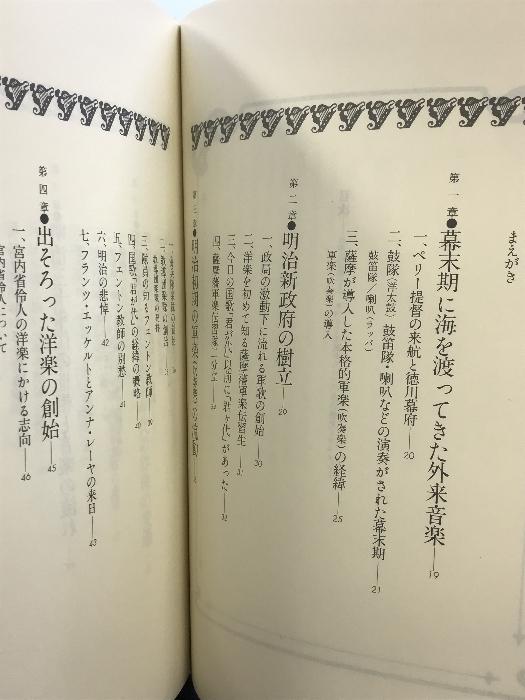 まえがき
第一章●幕末期に海を渡ってきた外来音楽——19
一、ペリー提督の来航と徳川幕府——20
二、鼓隊（洋太鼓）鼓笛隊・喇叭などの演奏がされた幕末期——21
鼓笛隊／喇叭（ラッパ）
三、薩摩が導入した本格的軍楽（吹奏楽）の経緯——25
軍楽（吹奏楽）の導入
第二章●明治新政府の樹立——29
一、政局の激動下に流れる軍歌の創始——30
二、洋楽を初めて知る薩摩藩軍楽伝習生——31
三、今日の国歌「君が代」以前に「君が代」があった——32
四、薩摩藩軍楽伝習隊
第三章●明治初期の軍楽
三、隊員の知るフェントン教師——39
四、国歌「君が代」の
五、フェントン教師の別愁——41
六、明治の悲悼——42
七、フランツ・エッケルトとアンナ・レーヤの来日——43
第四章●出そろった洋楽の創始——45
一、宮内省伶人の洋楽にかける志向——46
宮内省伶人について